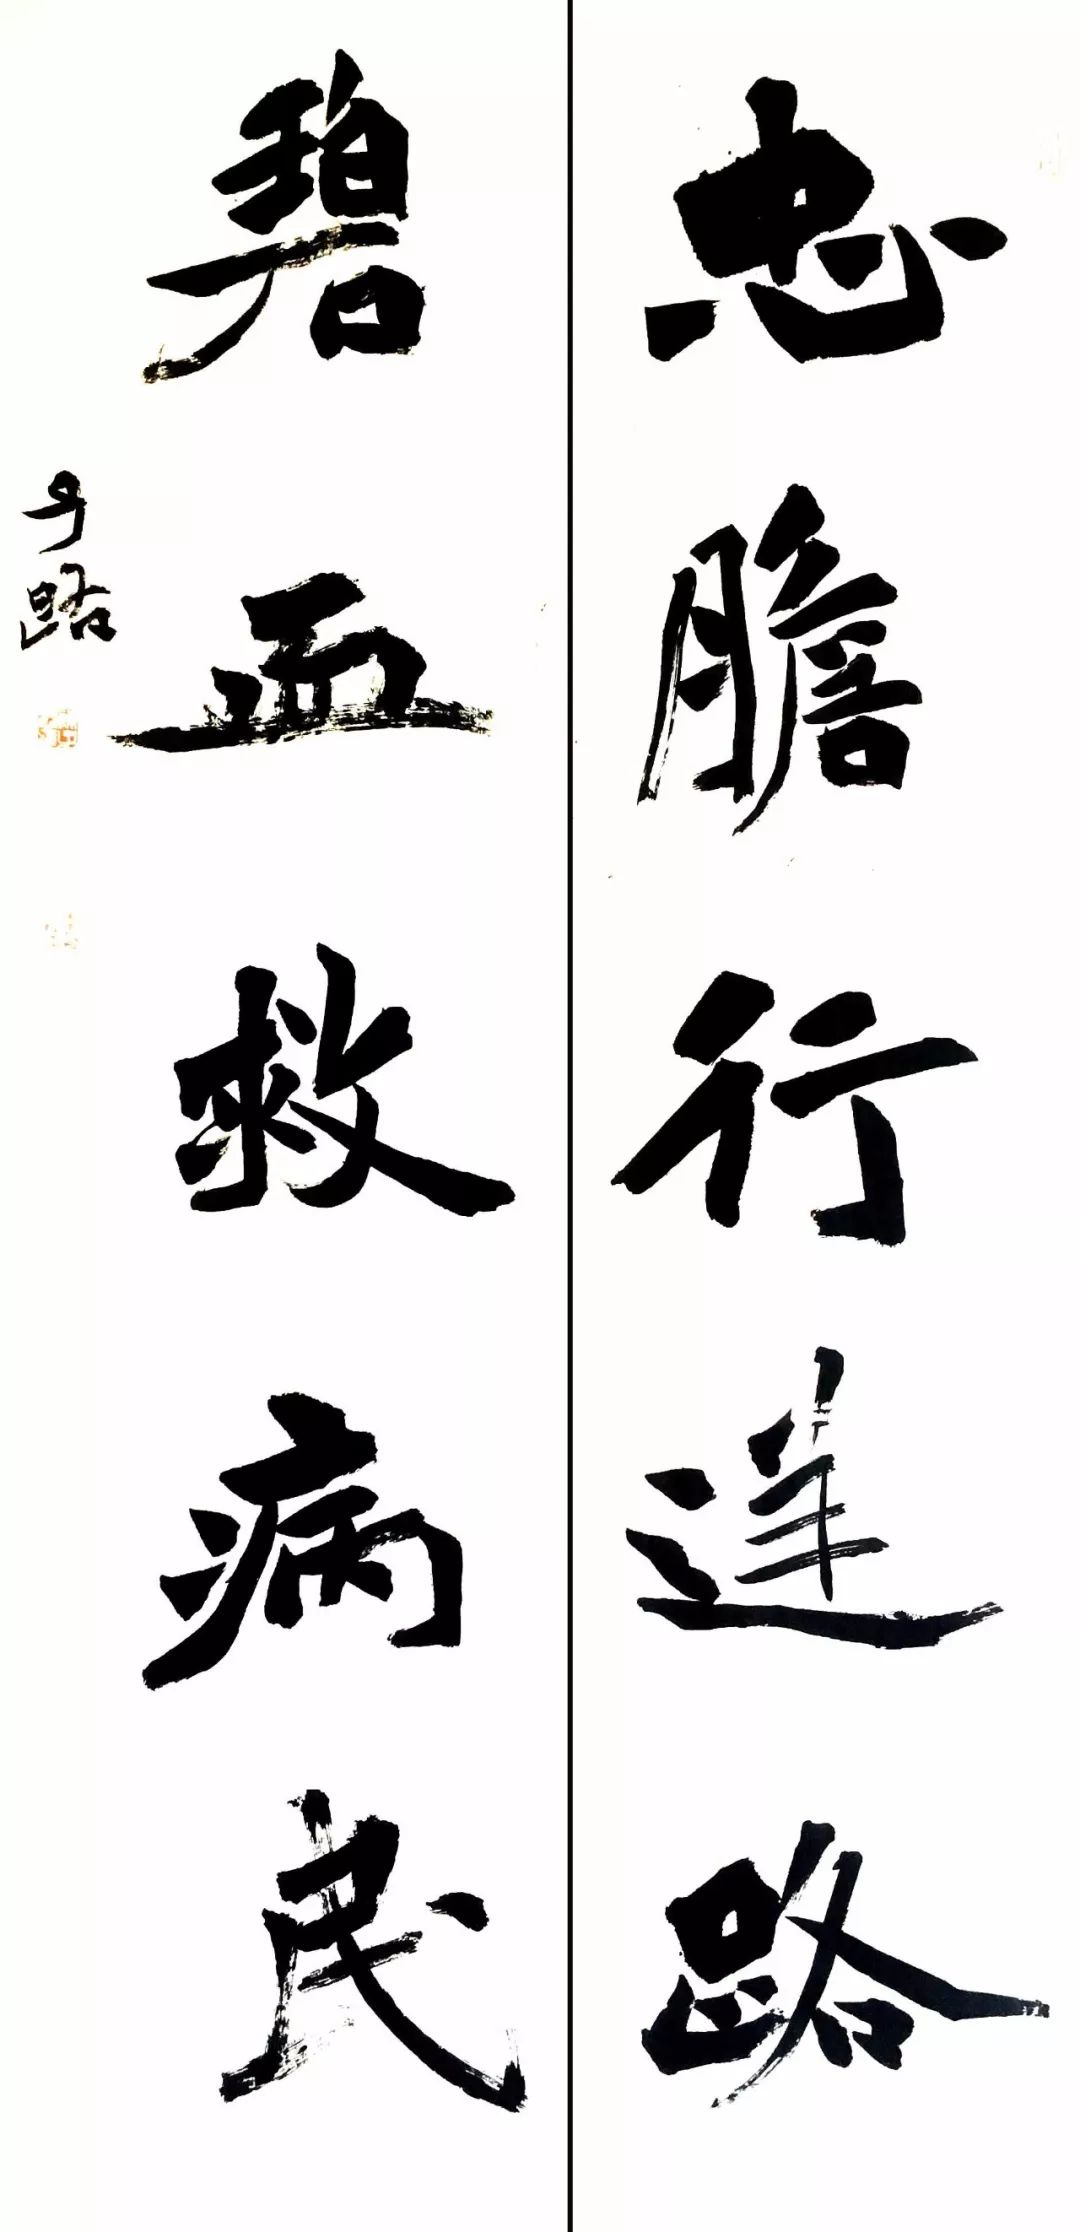 忠膽行路
碧血救病民
路